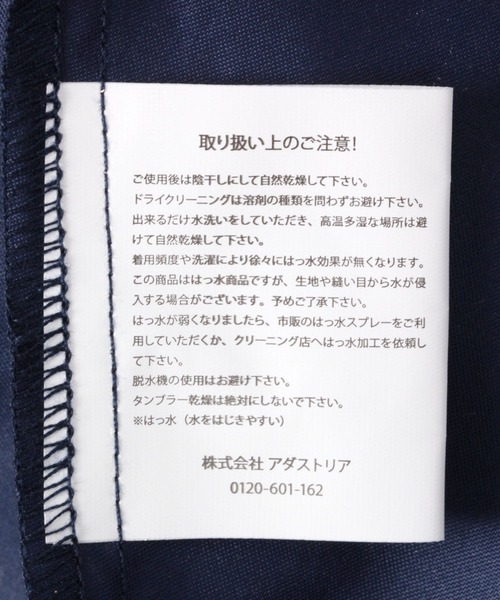 取り扱い上のご注意!
ご使用後は陰干しにして自然乾燥して下さい。
ドライクリーニングは溶剤の種類を問わずお避け下さい。
出来るだけ水洗いをしていただき、高温多湿な場所は避
けて自然乾燥して下さい。
着用頻度や洗濯により徐々にはっ水効果が無くなります。
この商品ははっ水商品ですが、生地や縫い目から水が侵
入する場合がございます。予めご了承下さい。
はっ水が弱くなりましたら、市販のはっ水スプレーをご利
用していただくか、クリーニング店へはっ水加工を依頼し
て下さい。
脱水機の使用はお避け下さい。
タンブラー乾燥は絶対にしないで下さい。
※はっ水（水をはじきやすい）
株式会社 アダストリア
0120-601-162